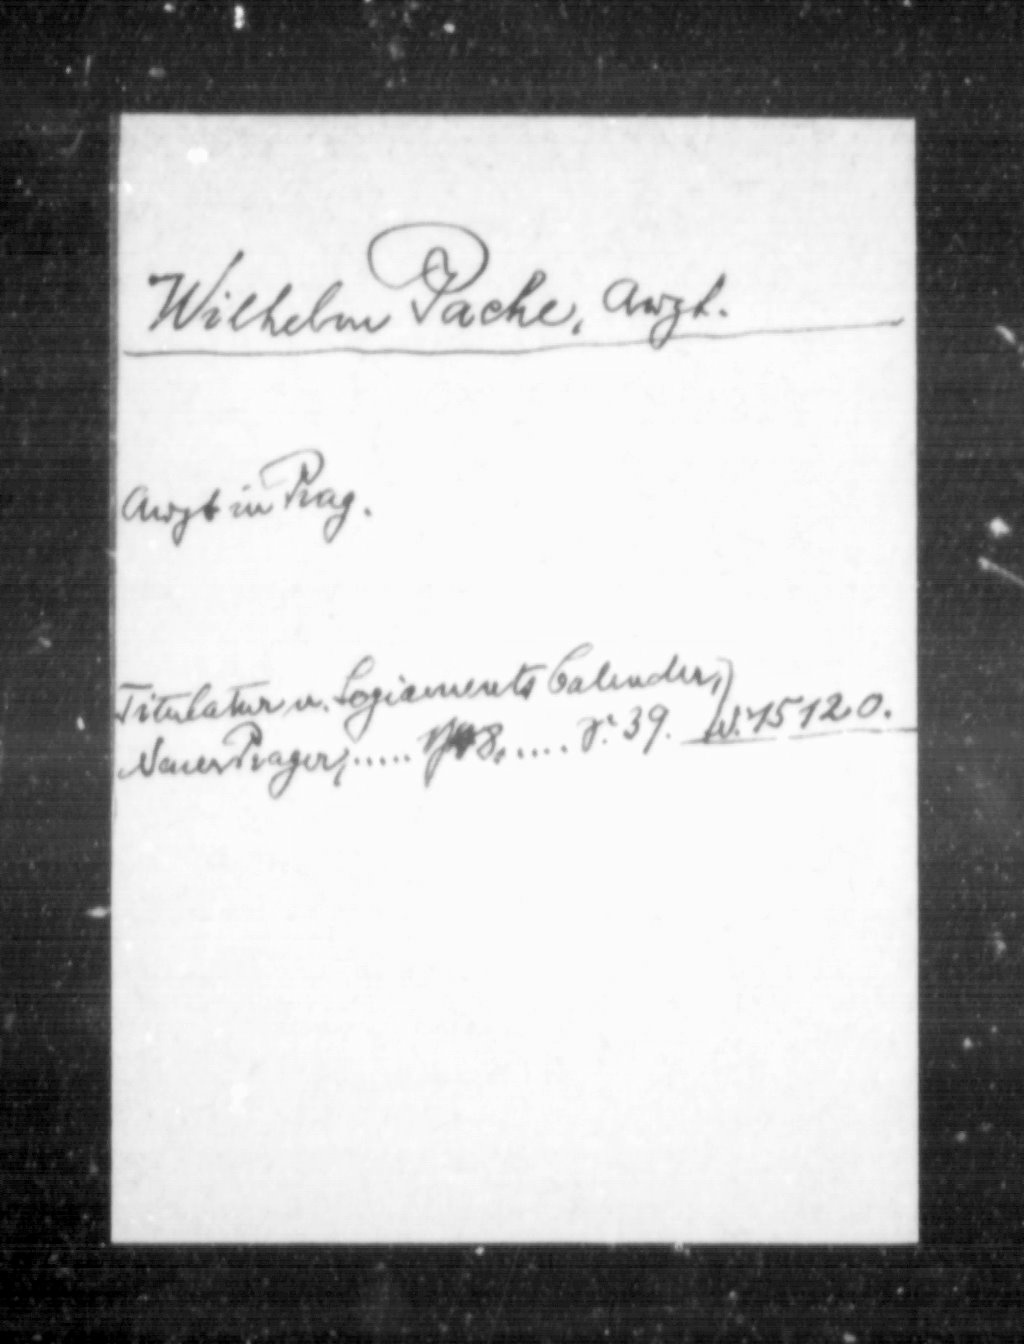 Wilhelm Pache, Arzt.
Arzt in Prag.
Titulatur u. Logiaments Calender,
Neuer Prager, ..... ..... S. 39. W. 15120.